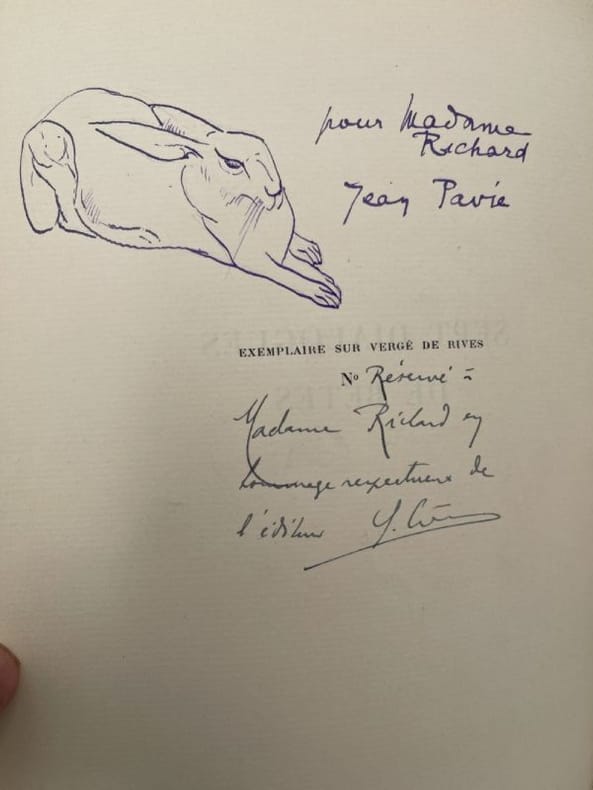 pour Madame
Richard
Jean Pavie
EXEMPLAIRE SUR VERGÉ DE RIVES
Nº Réservé =
Madame Richard en
hommage respectueux de
l'éditeur